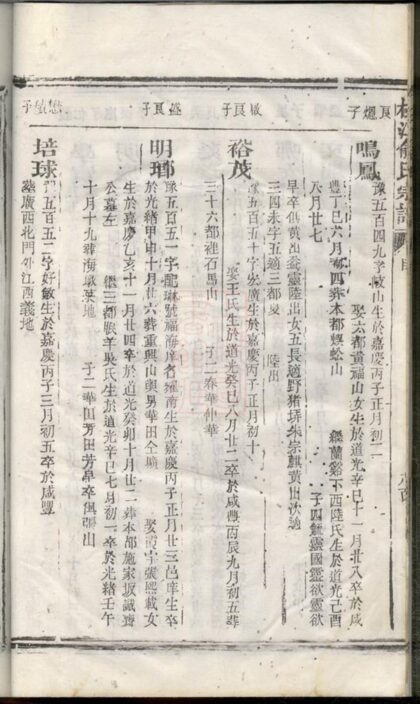 良燿子
鳴鳳
豫五百四九字岐山生於嘉慶丙子正月初二
娶六都黃福山女生於道光辛巳十一月廿八卒於咸
豐丁巳六月初四葬本都蜈蚣山
繼蘭谿下西陸氏生於道光己酉
八月廿七
子四毓靈國靈欲靈欲
早卒俱黃出 益靈陸出女五長適野猪塘朱宗麒黃出次適
三四未字五適三都夏 陸出
啟良子
裕茂
豫五百五十字宏廣生於嘉慶丙子正月初十
娶王氏生於道光癸巳八月廿二卒於咸豐丙辰九月初五葬
三十六都裡石馬山
子二春華仲華
盛良子
明瑯
豫五百五一字配琳號福海庠名耀南生於嘉慶丙子正月廿三邑庠生卒
於光緒甲申十月廿六葬重興山與男華田仝壙
娶 字張 載女
生於嘉慶乙亥十一月廿四卒於道光癸卯十月廿二葬本都施家坂識齊
公墓左
繼三都殿前吳氏生於道光辛巳七月初一卒於光緒壬午
十月十九葬海墩基地
子二華田芳田芳早卒俱張出
懋敏子
培球
豫五百五二字好敏生於嘉慶丙子三月初五卒於咸豐
葬廣西北門外江西義地